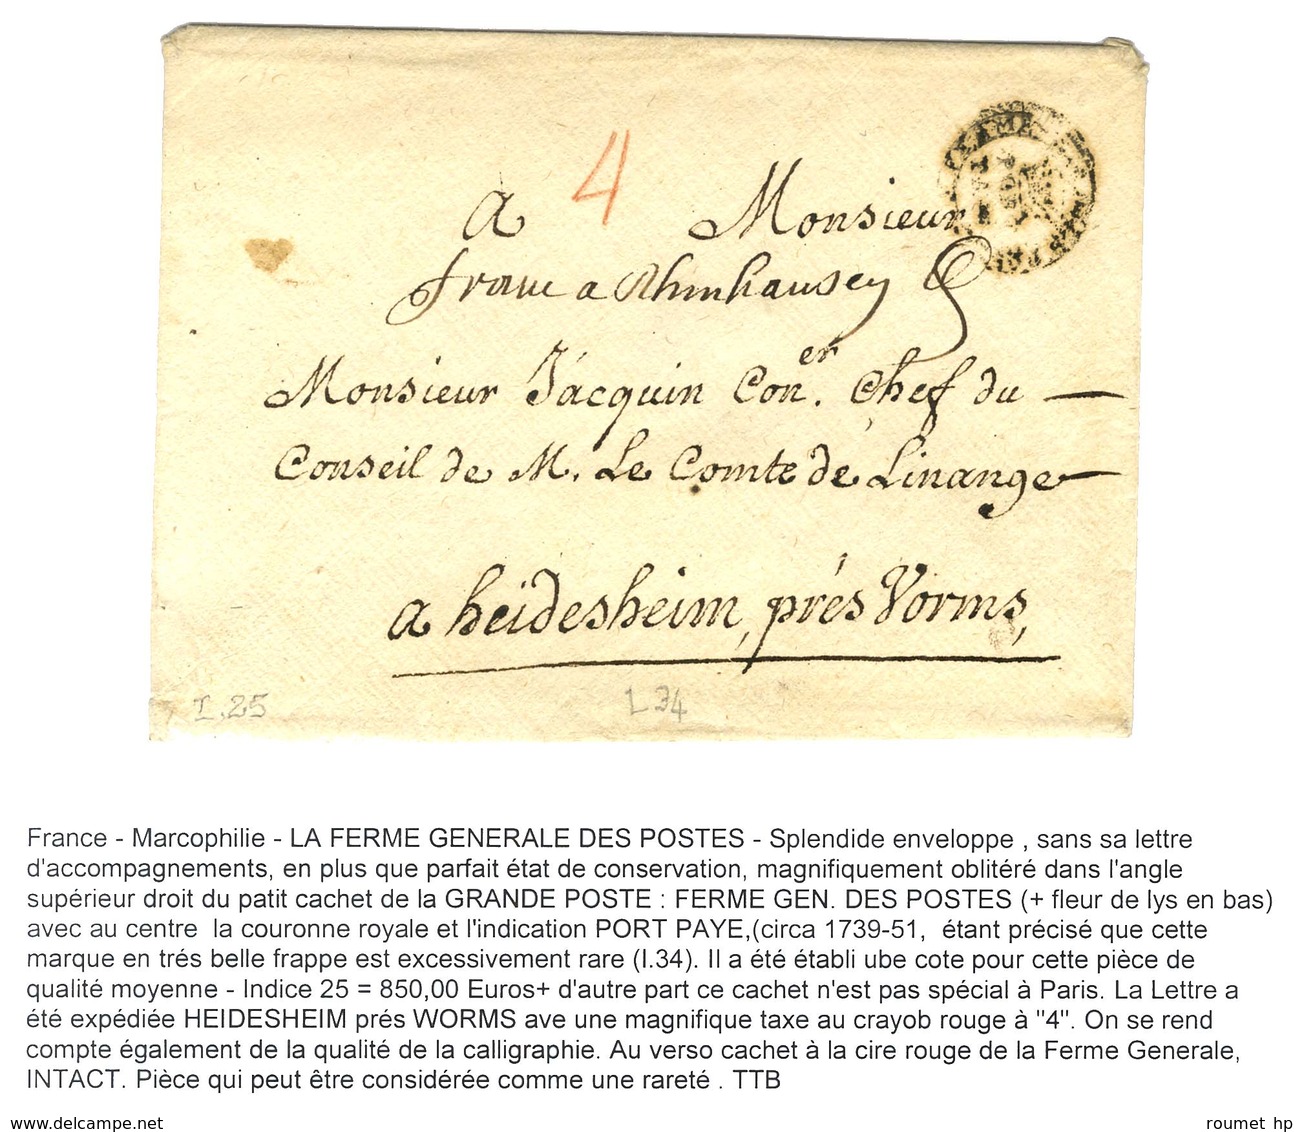 4
a Monsieur
franc a Rhinhausen
Monsieur Jacquin Con.er Chef du
Conseil de M. Le Comte de Linange
a heïdesheim, prés Vorms,
I.25 I.34
France - Marcophilie - LA FERME GENERALE DES POSTES - Splendide enveloppe , sans sa lettre
d'accompagnements, en plus que parfait état de conservation, magnifiquement oblitéré dans l'angle
supérieur droit du patit cachet de la GRANDE POSTE : FERME GEN. DES POSTES (+ fleur de lys en bas)
avec au centre la couronne royale et l'indication PORT PAYE,(circa 1739-51, étant précisé que cette
marque en trés belle frappe est excessivement rare (I.34). Il a été établi ube cote pour cette pièce de
qualité moyenne - Indice 25 = 850,00 Euros+ d'autre part ce cachet n'est pas spécial à Paris. La Lettre a
été expédiée HEIDESHEIM prés WORMS ave une magnifique taxe au crayob rouge à "4". On se rend
compte également de la qualité de la calligraphie. Au verso cachet à la cire rouge de la Ferme Generale,
INTACT. Pièce qui peut être considérée comme une rareté . TTB
www.delcampe.net
roumet hp